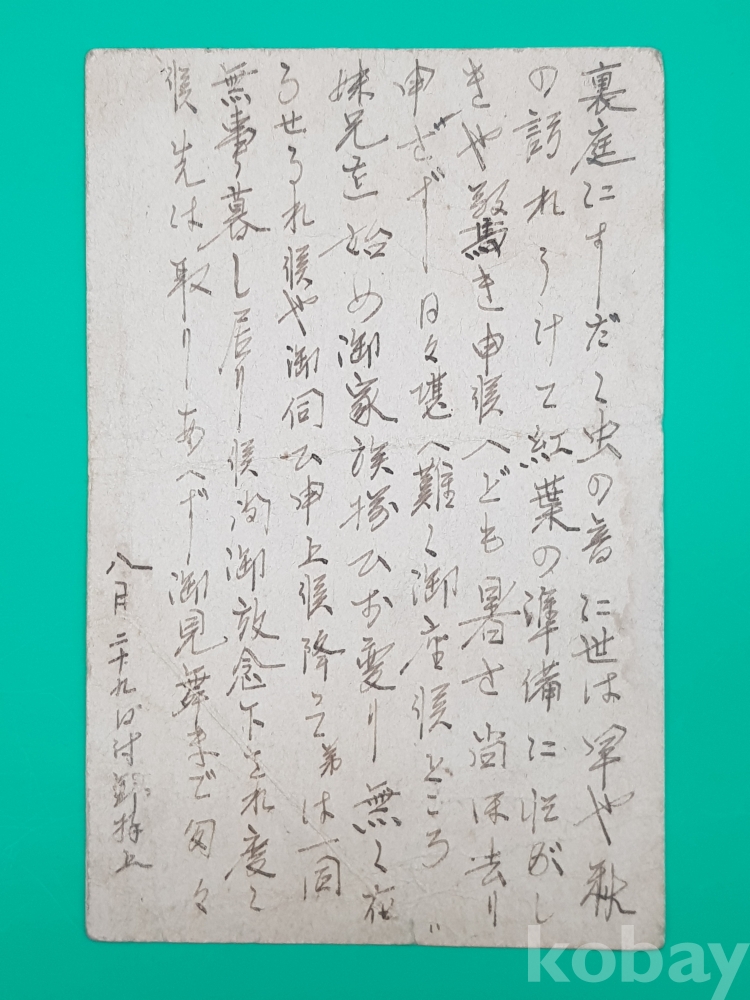 裏庭にすだく虫の音に世は早や秋
の訪れうけて紅葉の準備に忙がし
きや驚き申候へども暑さ尚ほ去り
申さず日々堪へ難く御座候ところ
妹兄を始め御家族様ひお変り無く在
らせられ候や御伺ひ申上候降って弟は一同
無事暮し居り候間御放念下され度く
候先は取りあへず御見舞まで匆々
八月二十九日
kobay